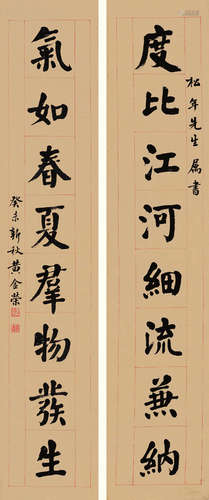 松年先生属書
度比江河細流兼納
氣如春夏羣物發生
癸未新秋黄金榮